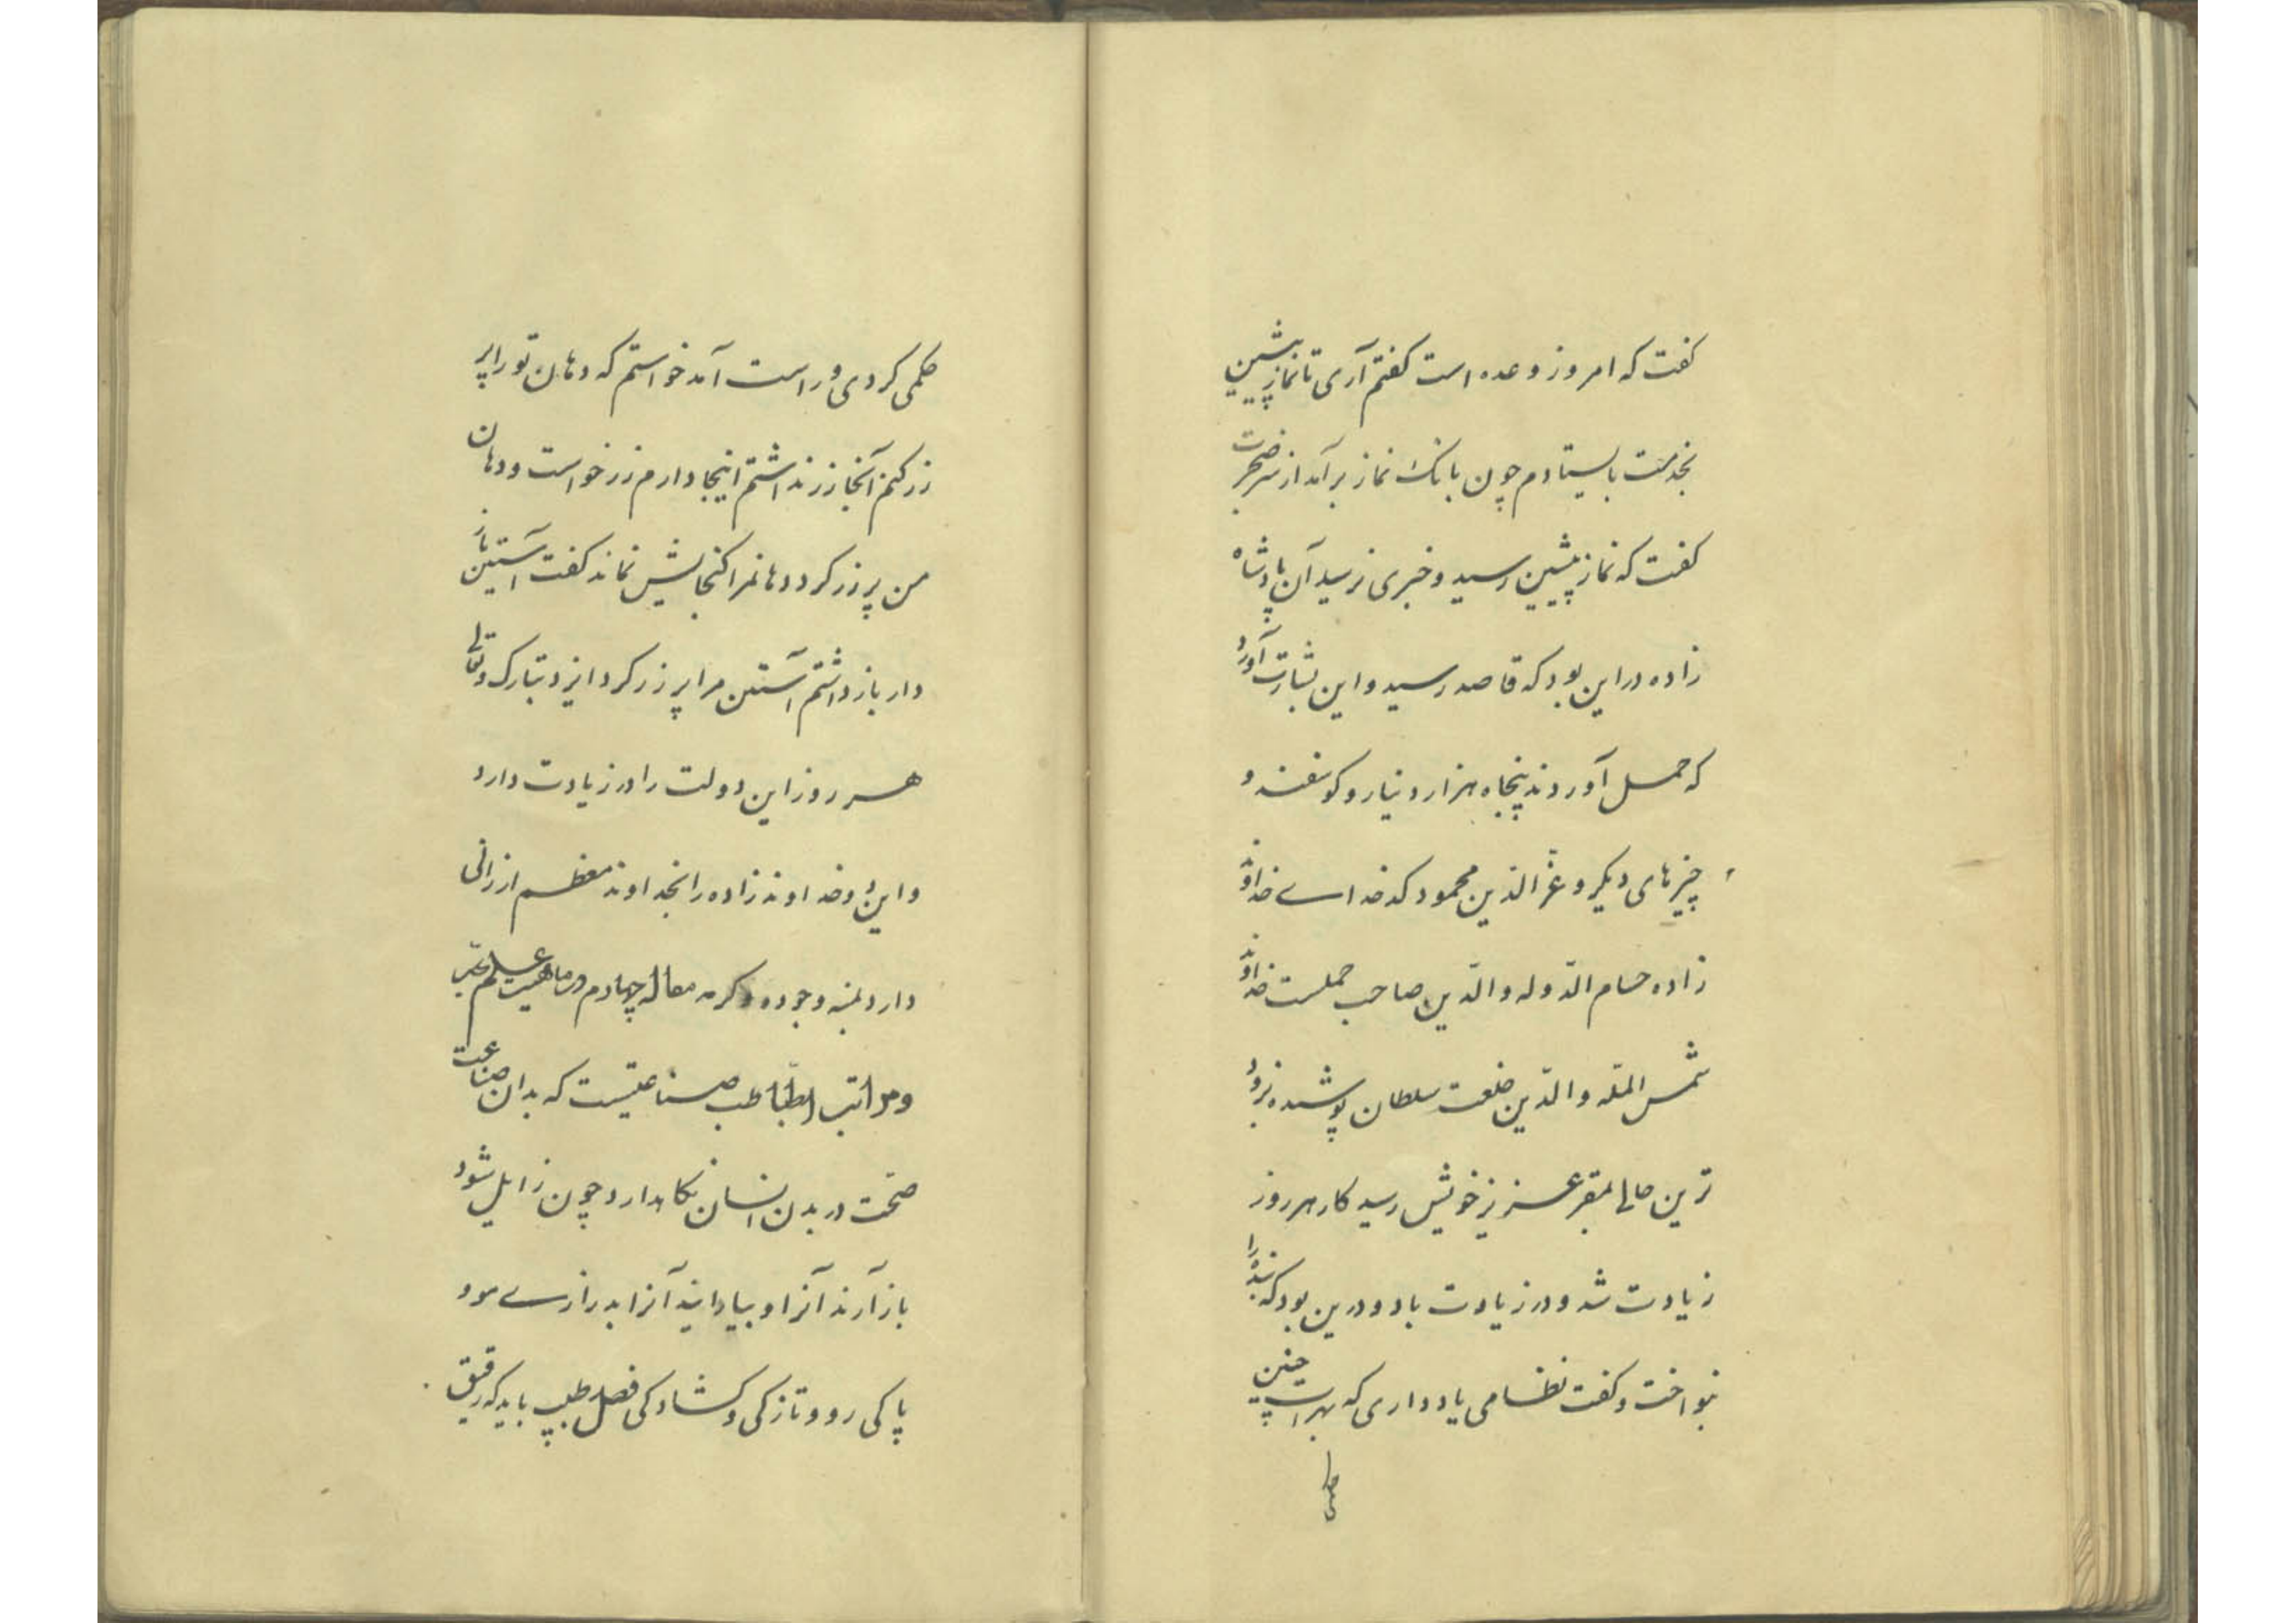 کفت که امروز وعده است کفتم آری تا نماز پیشین
بخدمت بایستادم چون بانک نماز برآمد از سر ضجرت
کفت که نماز پیشین رسید و خبری نرسید آن پادشاه
زاده در این بود که قاصد رسید و این بشارت آورد
که حمل آوردند پنجاه هزار دینار و کوسفند و
چیزهای دیکر و عزّ الدین محمود کدخدای خداوند
زاده حسام الدّوله والدّین صاحب حملست خداوند
شمس الملّه والدّین خلعت سلطان پوشیده بزود
ترین حالی بمقر عزیز خویش رسید کار هر روز
زیادت شد و در زیادت باد و درین بود که بنده را
بنواخت و کفت نظامی یاد داری که بهرات چنین
حکمی
حکمی کردی و راست آمد خواستم که دهان تو را پر
زر کنم آنجا زر نداشتم اینجا دارم زر خواست و دهان
من پر زر کرد دهانم را کنجایش نماند کفت آستین باز
دار باز داشتم آستین مرا پر زر کرد ایزد تبارک و تعالی
هر روز این دولت را در زیادت دارد
و این دو خداوندزاده را بخداوند معظم ارزانی
داراد بمنه وجوده و کرمه مقاله چهارم در ماهیت علم طب
و مراتب اطبّا طب صناعتیست که بدان صناعت
صحّت در بدن انسان نکاهدارد و چون زایل شود
باز آرند آنرا و بیارایند آنرا بدرازی مود
پاکی رو و تازکی و کشادکی فصل طبیب باید که رقیق